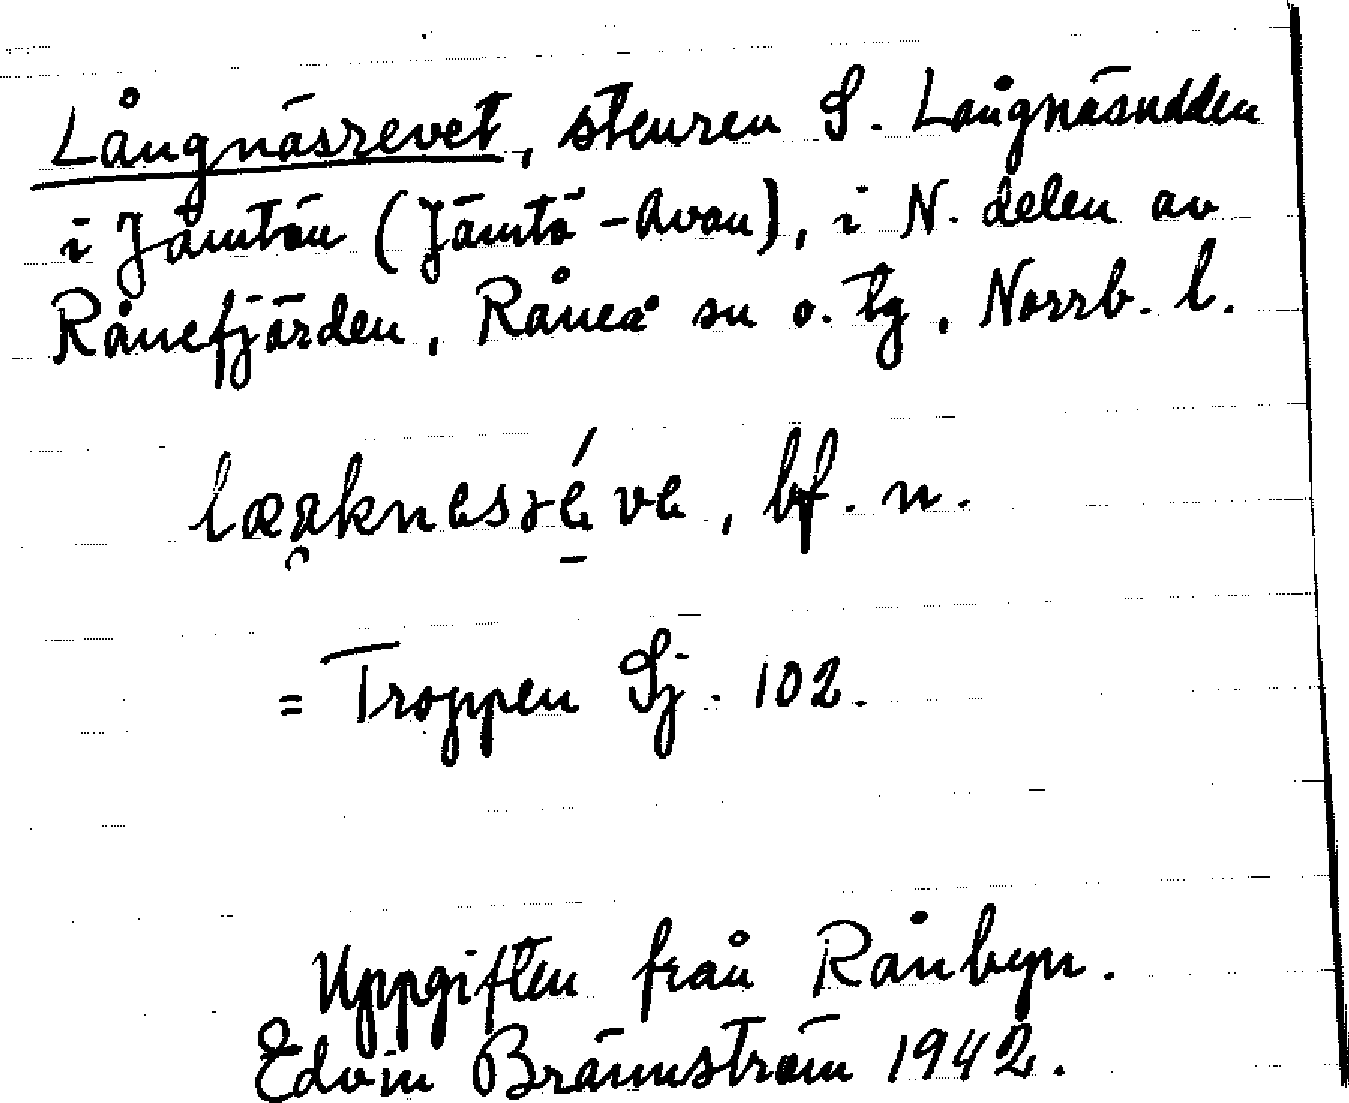 Långnäsrevet, stenren S. Långnäsudden
i Jämtön (Jämtö-Avan), i N. delen av
Rånefjärden, Råneå sn o. tg, Norrb. l.
bf. n.
= Troppen Sj. 102.
Uppgiften från Rånbyn.
Edvin Brännström 1942.